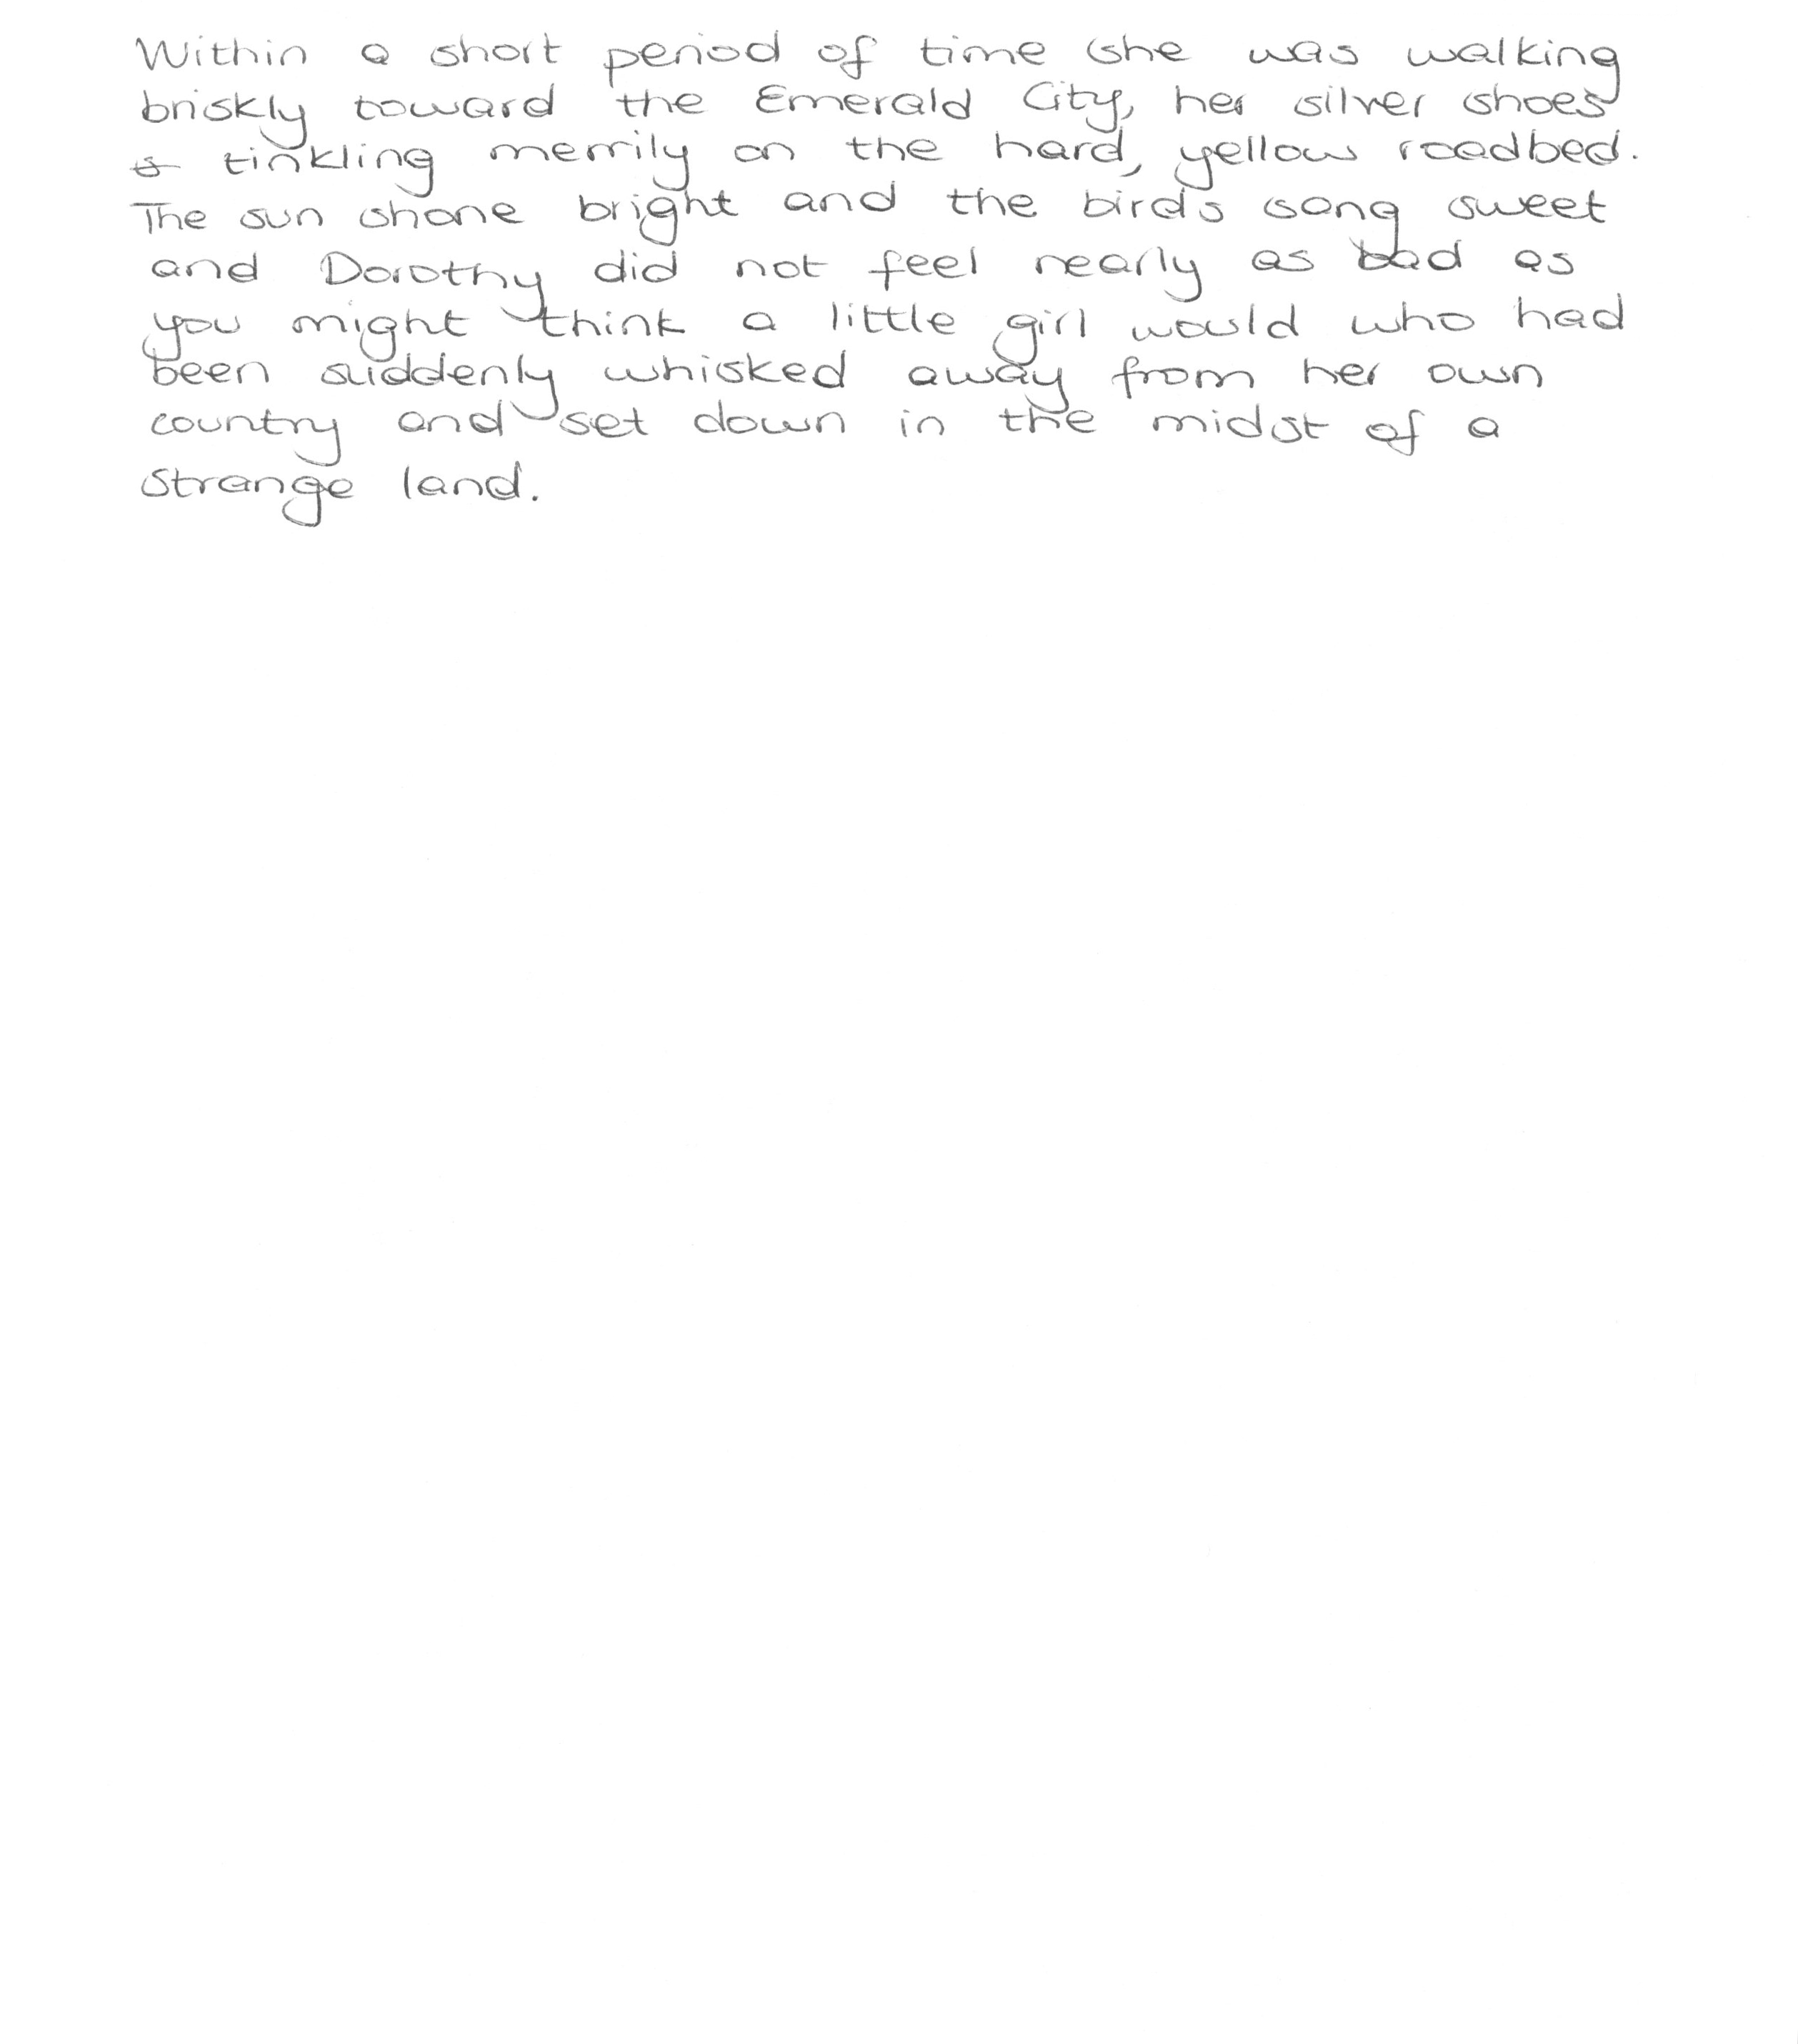 Within a short period of time she was walking
briskly toward the Emerald City, her silver shoes
tinkling merrily on the hard, yellow roadbed.
The sun shone bright and the birds song sweet
and Dorothy did not feel nearly as bad as
you might think a little girl would who had
been suddenly whisked away from her own
country and set down in the midst of a
strange land.